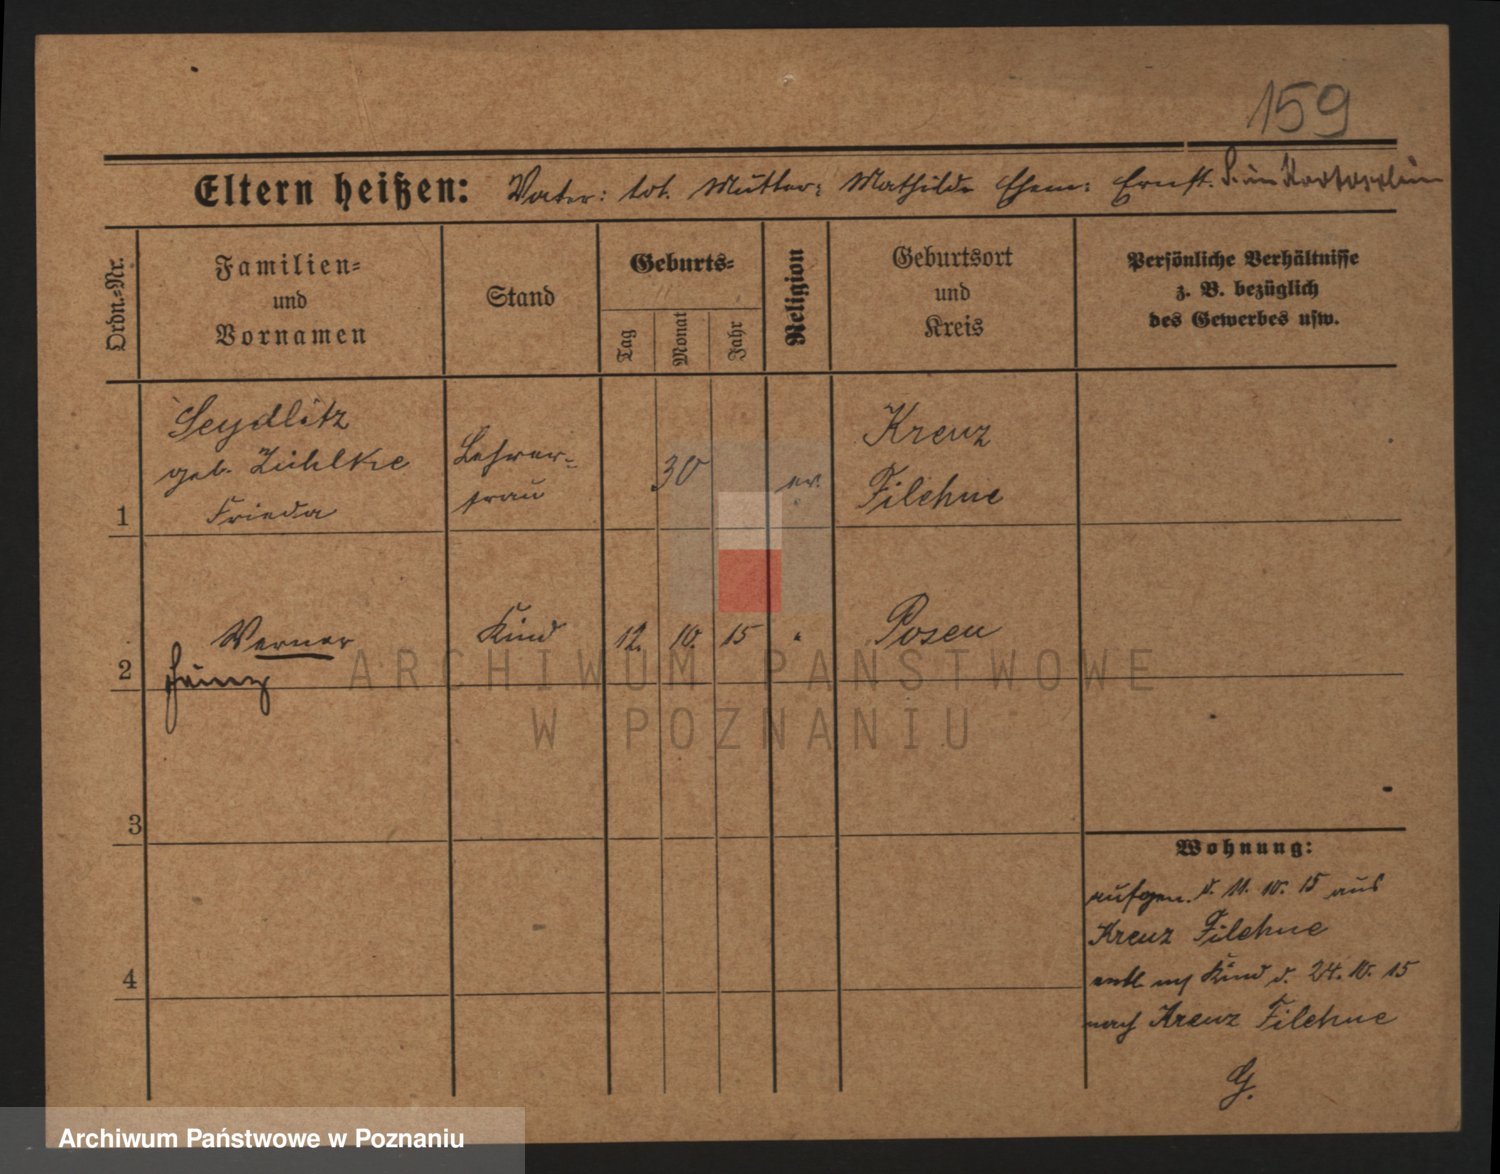 159
Eltern heißen: Vater: tot. Mutter: Mathilde Ehem: Ernst.
Ordn.-Nr.
Familien- und Vornamen
Stand
Geburts-
Tag
Monat
Jahr
Religion
Geburtsort und Kreis
Persönliche Verhältnisse
z. B. bezüglich
des Gewerbes usw.
1
Seydlitz
geb. Zühlke
Frieda
Lehrer-
frau
30
ev.
Kreuz
Filehne
2
Werner
Heinz
Kind
12.
10.
15
"
Posen
3
4
Wohnung:
aufgen. d. 11. 10. 15 aus
Kreuz Filehne
entl. mit Kind d. 24. 10. 15
nach Kreuz Filehne
G.
ARCHIWUM PAŃSTWOWE
W POZNANIU
Archiwum Państwowe w Poznaniu